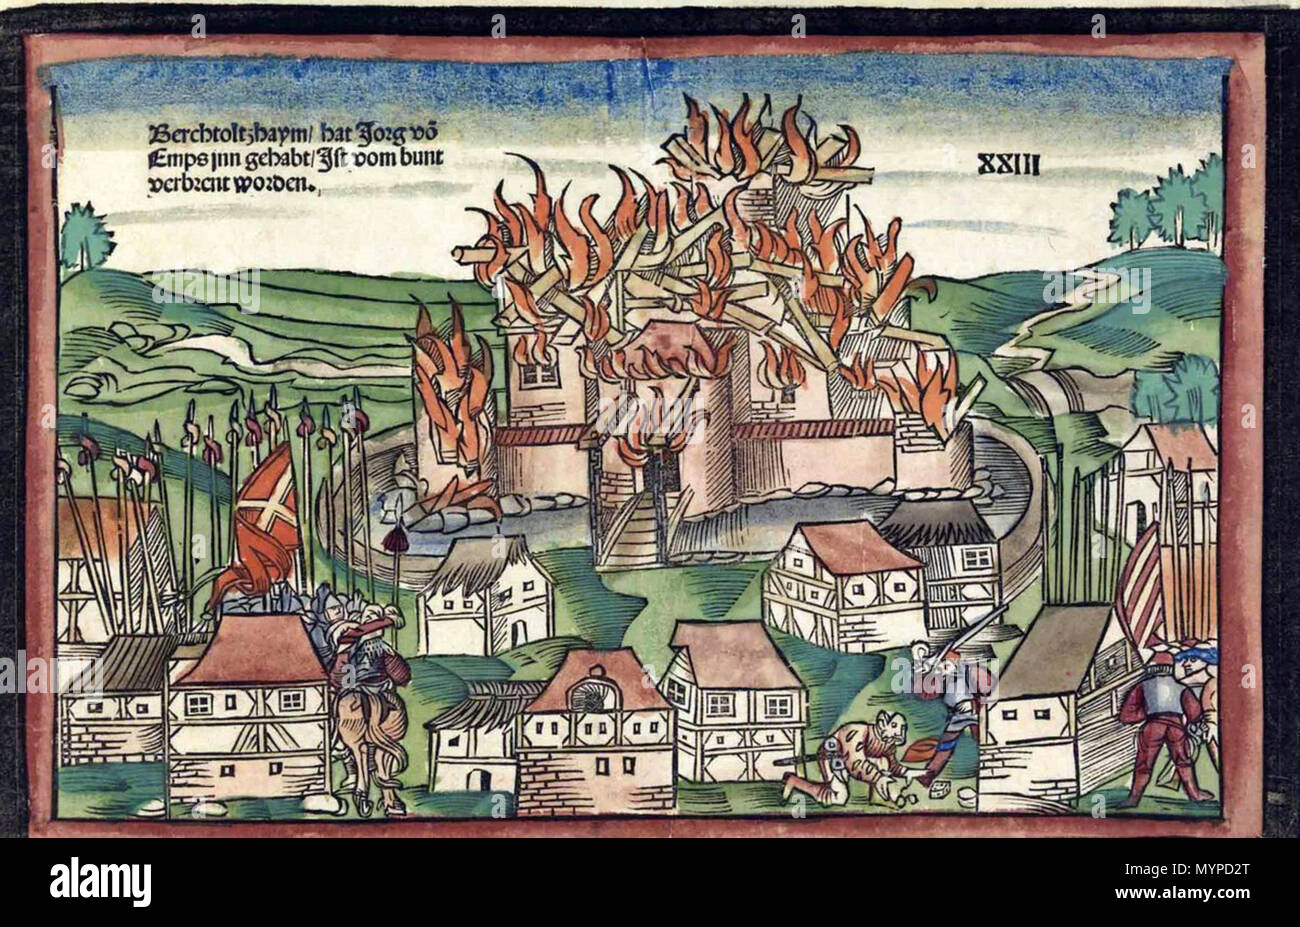 Berchtoltzhaym/ hat Jorg võ
Emps jnn gehabt/ Jst vom bunt
verbrent worden.
XXIII
a
alamy stock photo
MYPD2T
www.alamy.com